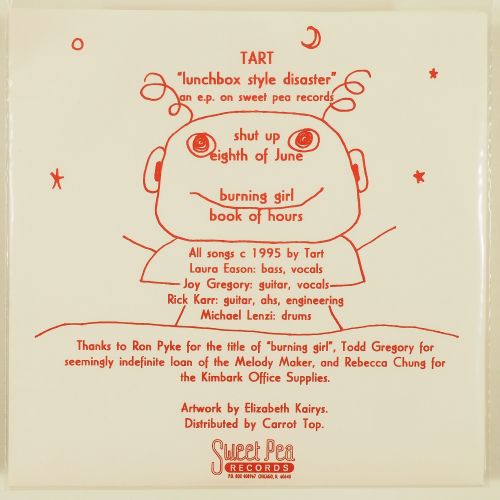 TART
"lunchbox style disaster"
an e.p. on sweet pea records
shut up
eighth of June
burning girl
book of hours
All songs c 1995 by Tart
Laura Eason: bass, vocals
Joy Gregory: guitar, vocals
Rick Karr: guitar, ahs, engineering
Michael Lenzi: drums
Thanks to Ron Pyke for the title of "burning girl", Todd Gregory for
seemingly indefinite loan of the Melody Maker, and Rebecca Chung for
the Kimbark Office Supplies.
Artwork by Elizabeth Kairys.
Distributed by Carrot Top.
Sweet Pea
RECORDS
P.O. BOX 408967 CHICAGO, IL 60640